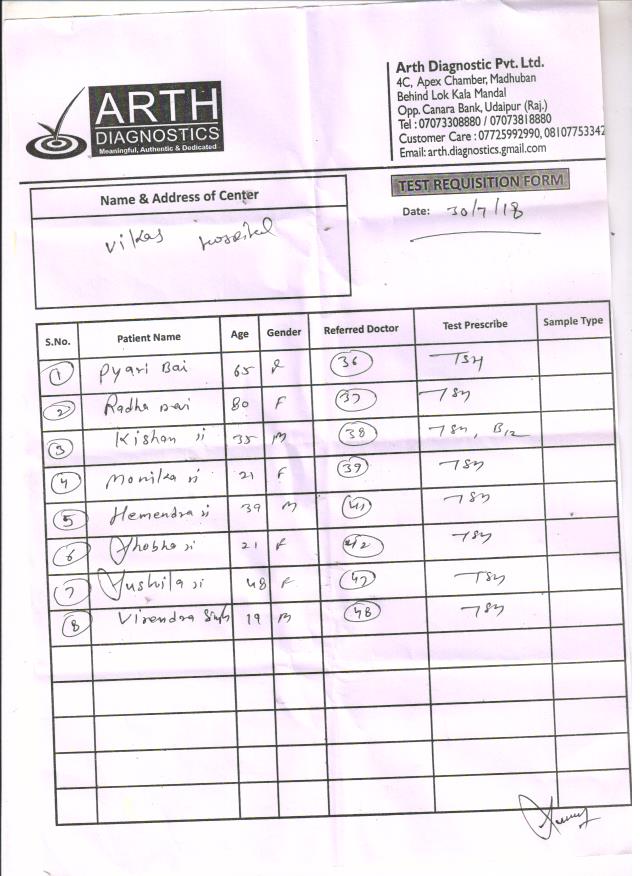 ARTH
DIAGNOSTICS
Meaningful, Authentic & Dedicated
Arth Diagnostic Pvt. Ltd.
4C, Apex Chamber, Madhuban
Behind Lok Kala Mandal
Opp. Canara Bank, Udaipur (Raj.)
Tel : 07073308880 / 07073818880
Customer Care : 07725992990, 08107753342
Email: arth.diagnostics.gmail.com
TEST REQUISITION FORM
Date: 30/7/18
Name & Address of Center
Vikas Hospital
S.No. Patient Name Age Gender Referred Doctor Test Prescribe Sample Type
1 Pyari Bai 65 F 36 TSH
2 Radha Devi 80 F 37 TSH
3 Kishan Ji 35 M 38 TSH, B12
4 Monika Ji 21 F 39 TSH
5 Hemendra Ji 39 M 41 TSH
6 Shobha Ji 21 F 42 TSH
7 Sushila Ji 48 F 47 TSH
8 Virendra Singh 19 M 48 TSH